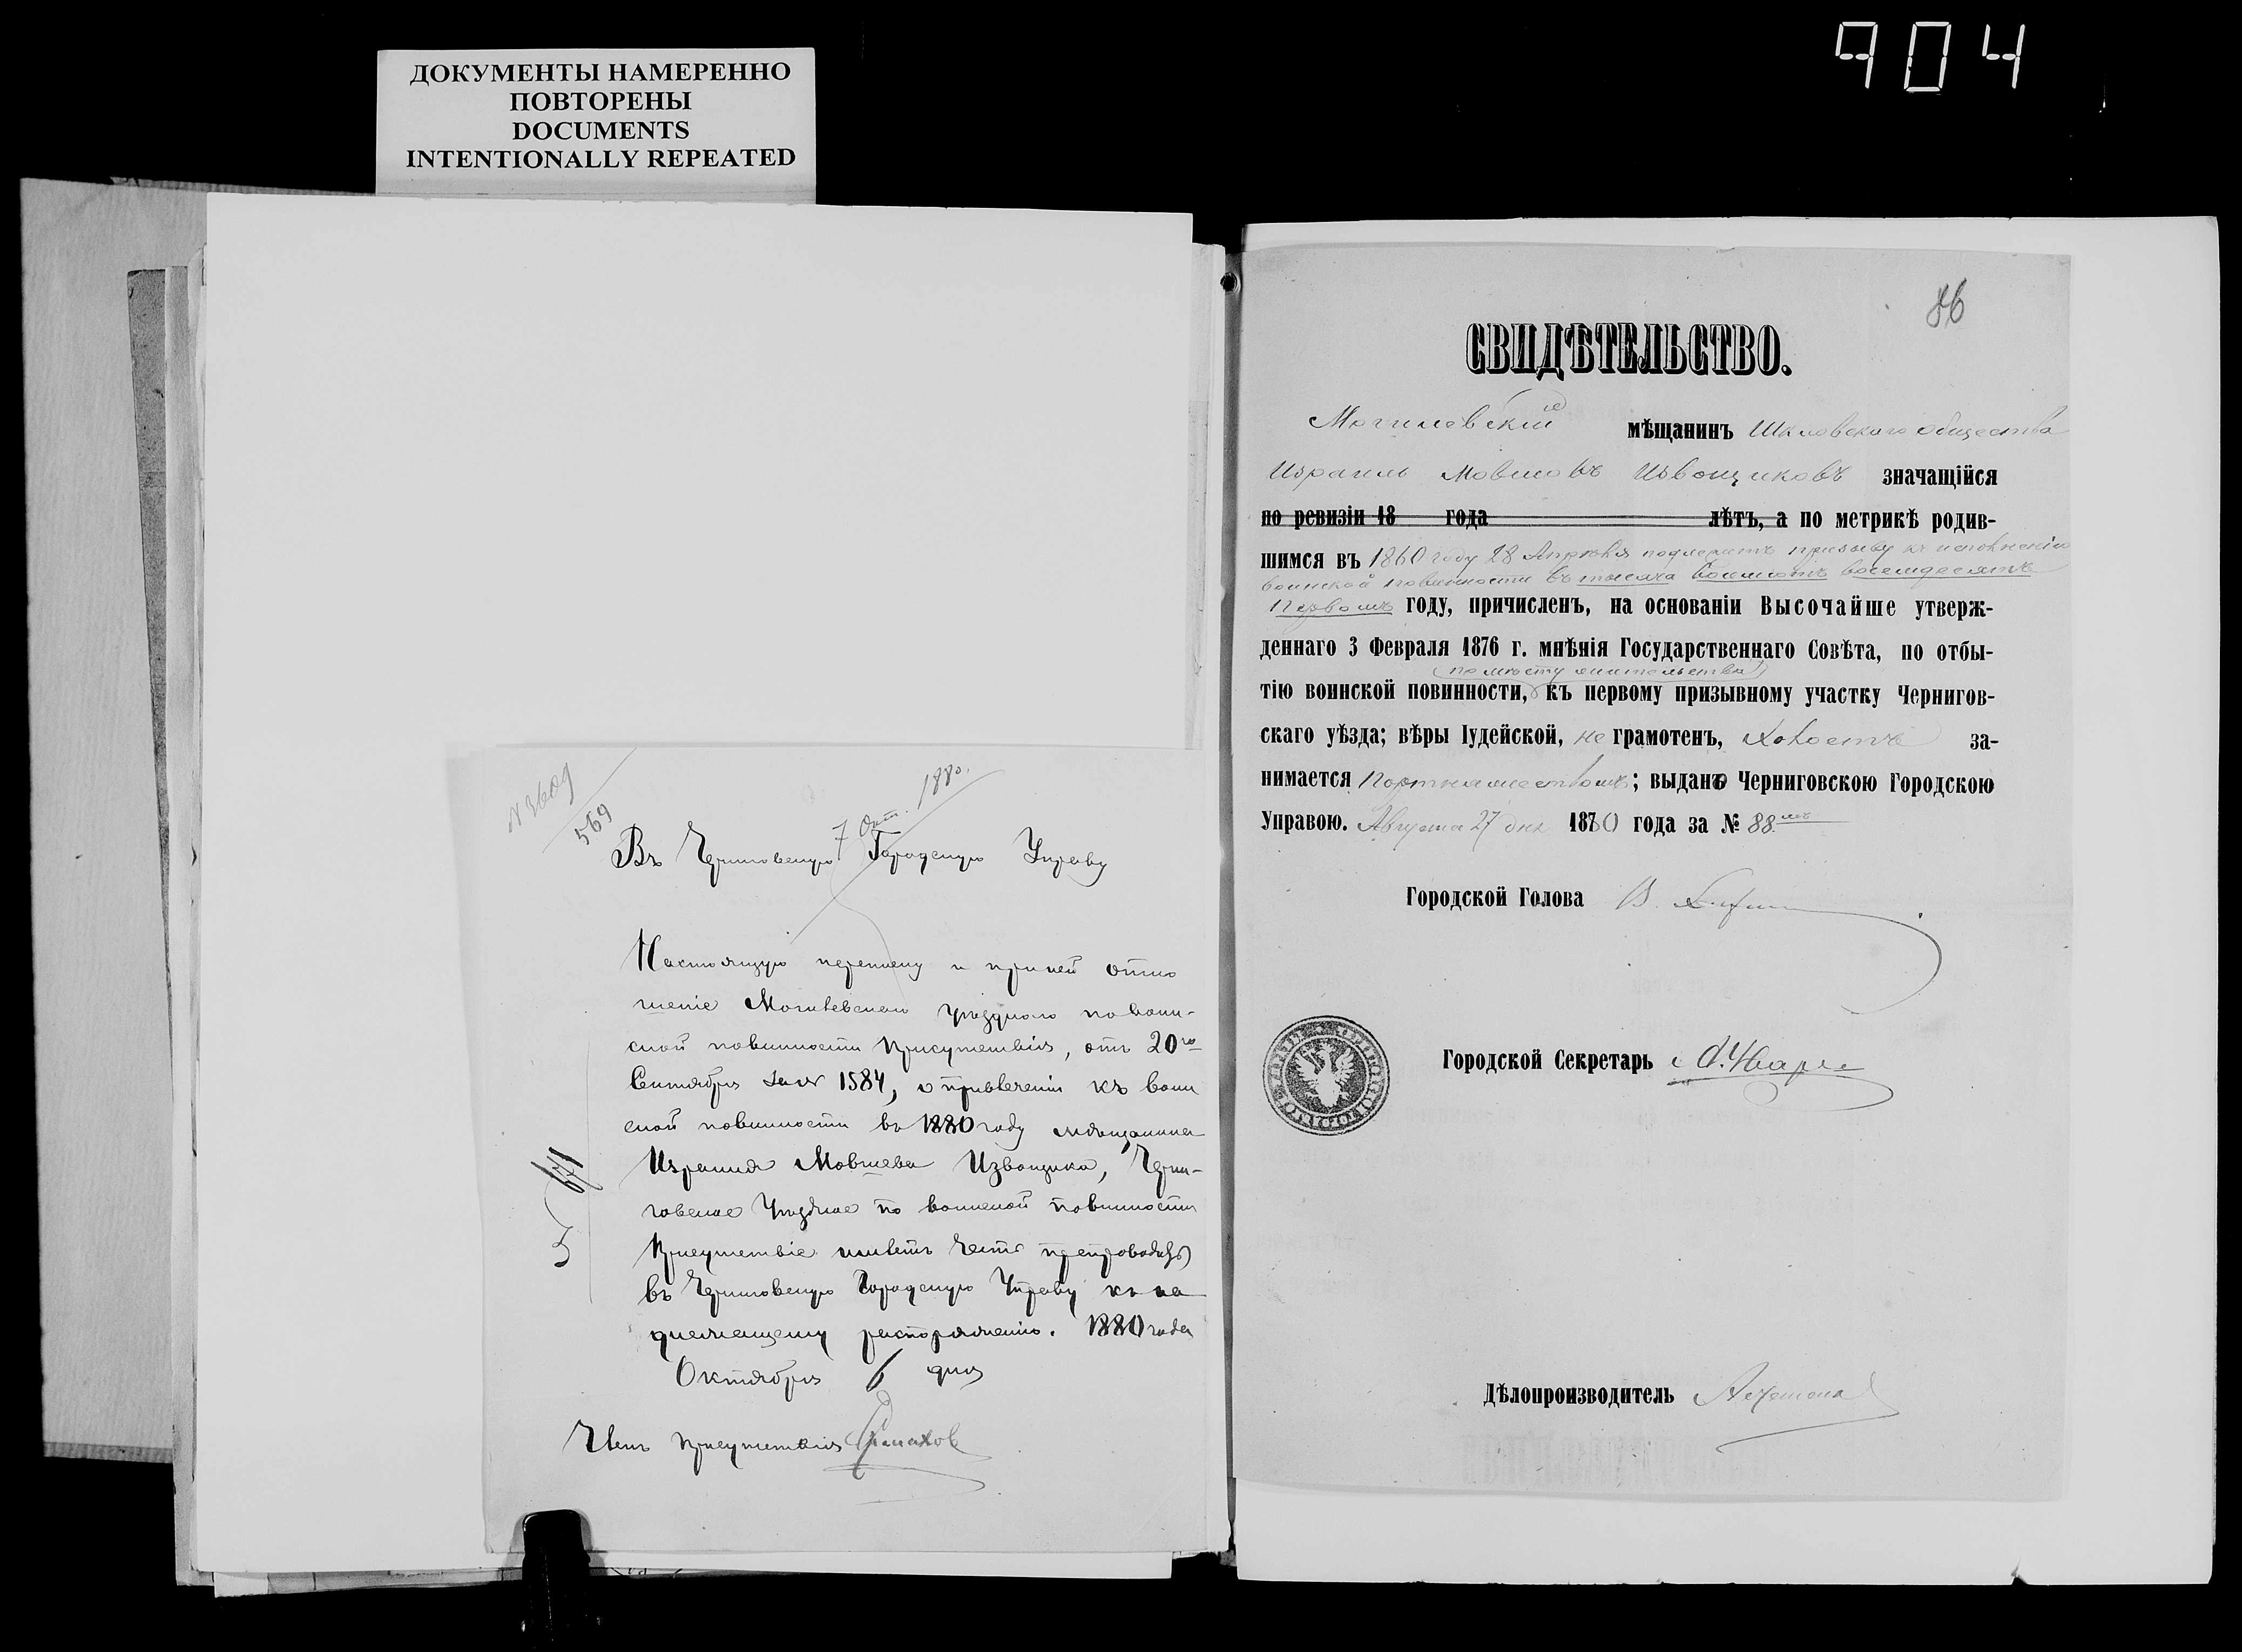 904
ДОКУМЕНТЫ НАМЕРЕННО
ПОВТОРЕНЫ
DOCUMENTS
INTENTIONALLY REPEATED
N 3609
569
7 Окт. 1880.
Въ Черниговскую Городскую Управу
Настоящую переписку и при ней отно
шеніе Могилевскаго Уѣзднаго по воин-
ской повинности Присутствія, отъ 20го
Сентября за № 1584, о привлеченіи къ воин
ской повинности въ 1880 году мѣщанина
Израиля Мовшева Извощика, Черни-
говское Уѣздное по воинской повинности
Присутствіе имѣетъ честь препроводить
въ Черниговскую Городскую Управу къ на
длежащему распоряженію. 1880 года
Октября 6 дня
Членъ Присутствія
641
86
СВИДѢТЕЛЬСТВО.
Могилевскій мѣщанинъ Шкловскаго общества
Израиль Мовшовъ Извощиковъ значащійся
по ревизіи 18 года лѣтъ, а по метрикѣ родив-
шимся въ 1860 году 28 Апрѣля подлежитъ призыву къ исполненію
воинской повинности въ тысяча восемьсотъ восемдесятъ
первомъ году, причисленъ, на основаніи Высочайше утверж-
деннаго 3 Февраля 1876 г. мнѣнія Государственнаго Совѣта, по отбы-
(по мѣсту жительства)
тію воинской повинности, къ первому призывному участку Чернигов-
скаго уѣзда; вѣры Іудейской, не грамотенъ, холостъ за-
нимается портняжествомъ; выдано Черниговскою Городскою
Управою. Августа 27 дня 1880 года за № 88.мъ
Городской Голова В.
Городской Секретарь
Дѣлопроизводитель